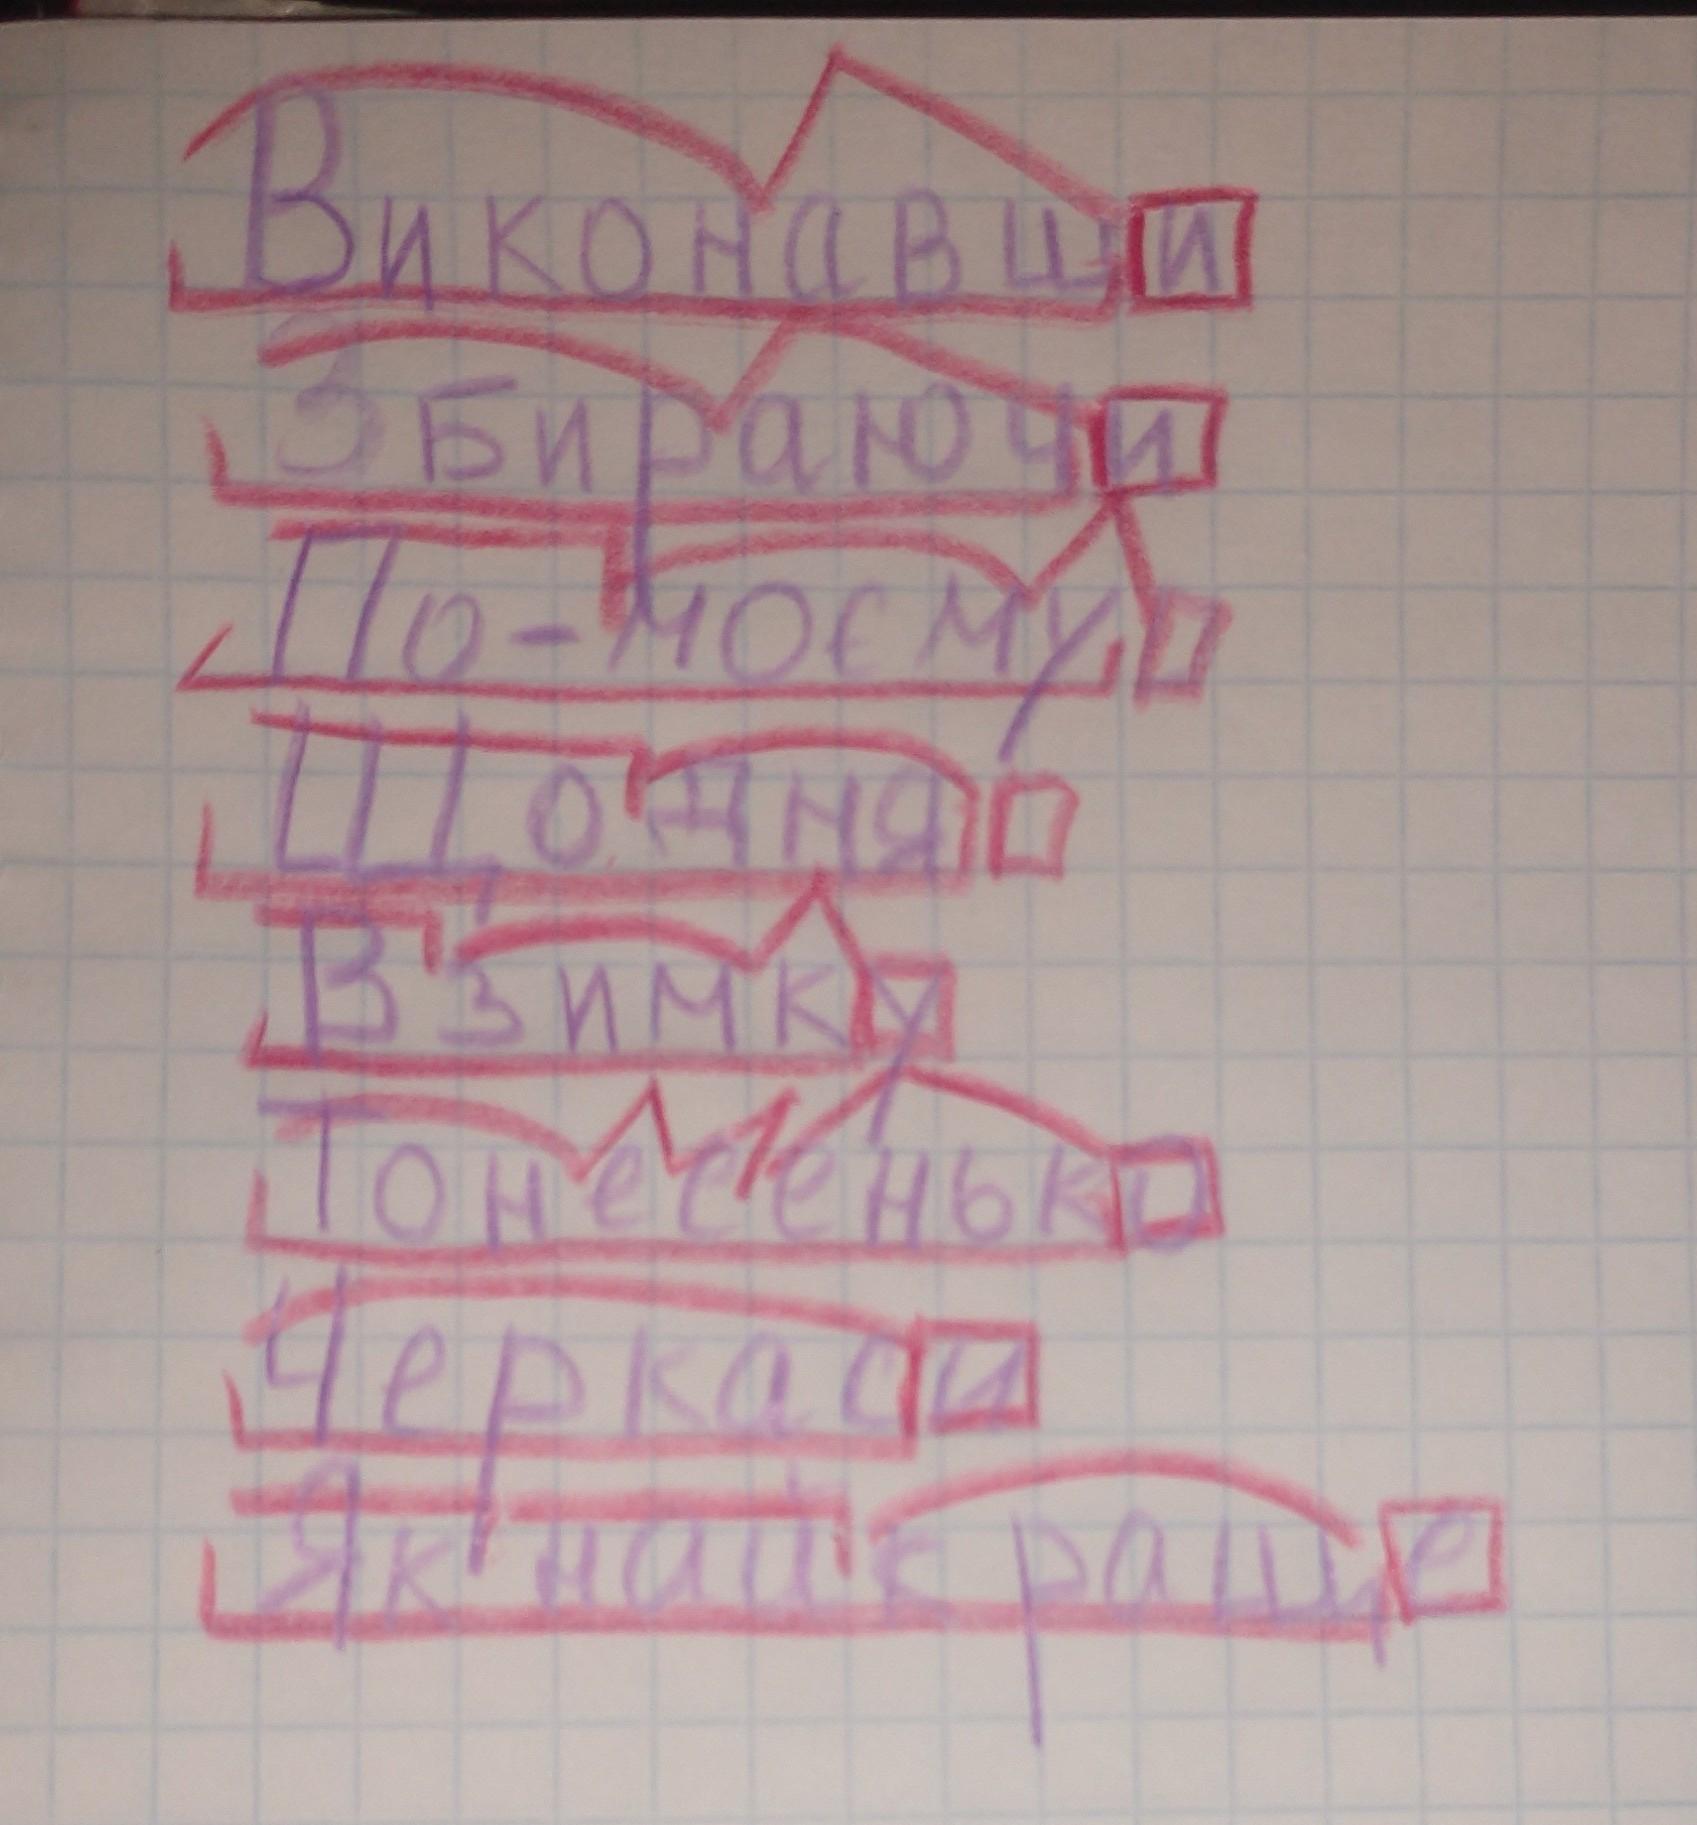 Виконавши
Збираючи
По-моєму
Щодня
Взимку
Тонесенько
Черкаси
Якнайкраще